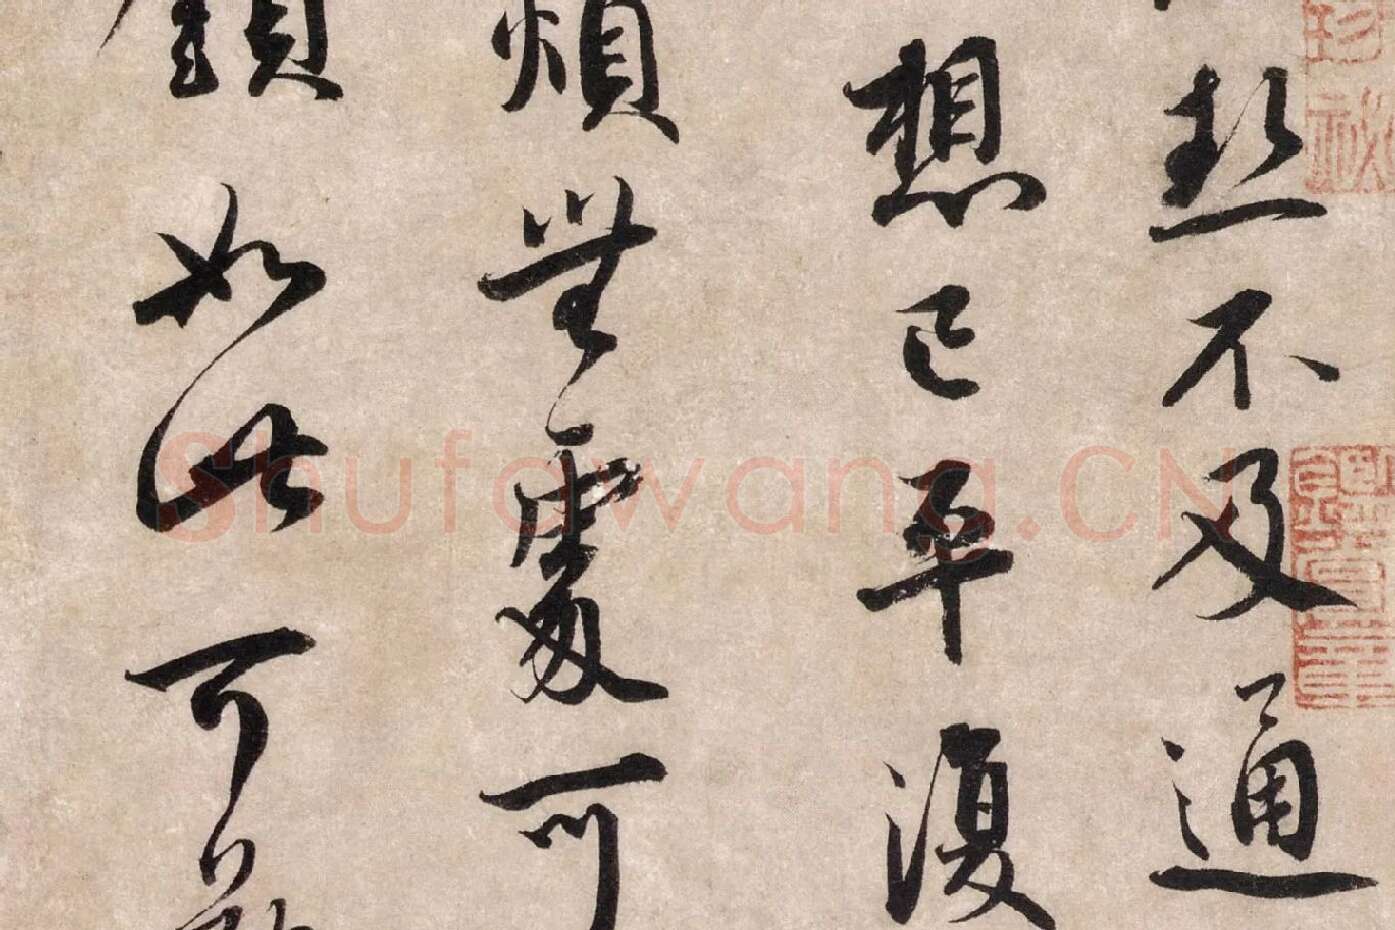 熱不及通
想已平復
煩無處可
鎖如此可歎
珍祕
Shufawang.CN